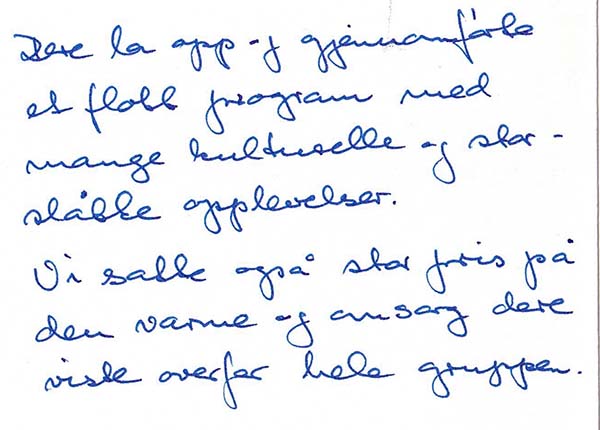 Dere la opp og gjennomførte
et flott program med
mange kulturelle og stor-
slåtte opplevelser.
Vi satte også stor pris på
den varme og omsorg dere
viste overfor hele gruppen.